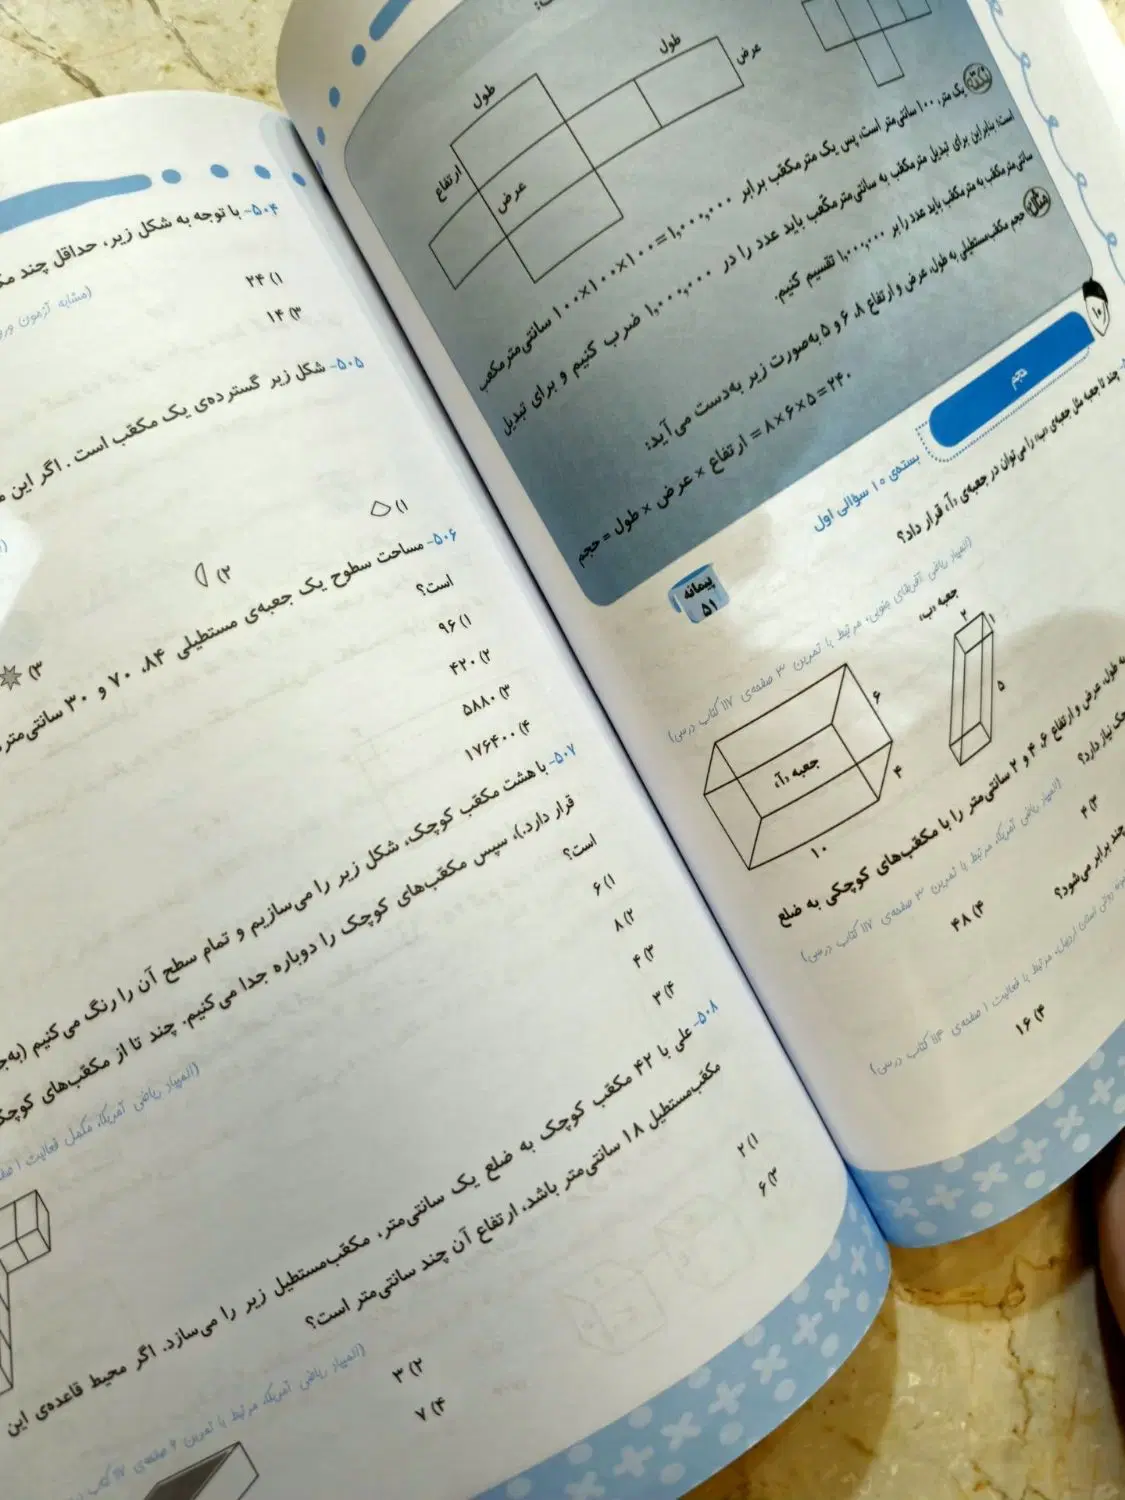 طول
عرض
طول
ارتفاع
عرض
نکته
یک متر، ۱۰۰ سانتی‌متر است، پس یک متر مکعب برابر ۱۰۰×۱۰۰×۱۰۰=۱,۰۰۰,۰۰۰ سانتی‌متر مکعب
است؛ بنابراین برای تبدیل متر مکعب به سانتی‌متر مکعب باید عدد را در ۱,۰۰۰,۰۰۰ ضرب کنیم و برای تبدیل
سانتی‌متر مکعب به متر مکعب باید عدد را بر ۱,۰۰۰,۰۰۰ تقسیم کنیم.
مثال
حجم مکعب‌مستطیلی به طول، عرض و ارتفاع ۸، ۶ و ۵ به‌صورت زیر به‌دست می‌آید:
حجم = طول × عرض × ارتفاع = ۸×۶×۵=۲۴۰
۱۰
حجم
بسته‌ی ۱۰ سؤالی اول
پیمانه
۵۱
چند تا جعبه مثل جعبه‌ی «ب» را می‌توان در جعبه‌ی «آ» قرار داد؟
(المپیاد ریاضی آفریقای جنوبی، مرتبط با تمرین ۳ صفحه‌ی ۱۱۷ کتاب درسی)
جعبه «ب»
۲
۱
۵
جعبه «آ»
۶
۴
۱۰
به طول، عرض و ارتفاع ۶، ۴ و ۲ سانتی‌متر را با مکعب‌های کوچکی به ضلع
نیاز دارد؟
(المپیاد ریاضی آمریکا، مرتبط با تمرین ۳ صفحه‌ی ۱۱۷ کتاب درسی)
۳) ۴
۴) ۴۸
چند برابر می‌شود؟
استان اردبیل، مرتبط با فعالیت ۱ صفحه‌ی ۱۱۴ کتاب درسی)
۴) ۱۶
۵۰۴- با توجه به شکل زیر، حداقل چند
(مشابه آزمون
۱) ۲۴
۳) ۱۴
۵۰۵- شکل زیر گسترده‌ی یک مکعب است. اگر این
۱)
۲)
۳)
۵۰۶- مساحت سطوح یک جعبه‌ی مستطیلی ۸۴، ۷۰ و ۳۰ سانتی‌متر
است؟
۱) ۹۶
۲) ۴۲۰
۳) ۵۸۸۰
۴) ۱۷۶۴۰۰
۵۰۷- با هشت مکعب کوچک، شکل زیر را می‌سازیم و تمام سطح آن را رنگ می‌کنیم
قرار دارد.)، سپس مکعب‌های کوچک را دوباره جدا می‌کنیم. چند تا از مکعب‌های
است؟
(المپیاد ریاضی آمریکا، مکمل فعالیت ۱
۱) ۶
۲) ۸
۳) ۴
۴) ۳
۵۰۸- علی با ۴۲ مکعب کوچک به ضلع یک سانتی‌متر، مکعب‌مستطیل زیر را می‌سازد. اگر محیط قاعده‌ی این
مکعب‌مستطیل ۱۸ سانتی‌متر باشد، ارتفاع آن چند سانتی‌متر است؟
(المپیاد ریاضی آمریکا، مرتبط با تمرین ۲ صفحه‌ی ۱۱۷ کتاب
۱) ۲
۲) ۳
۳) ۶
۴) ۷